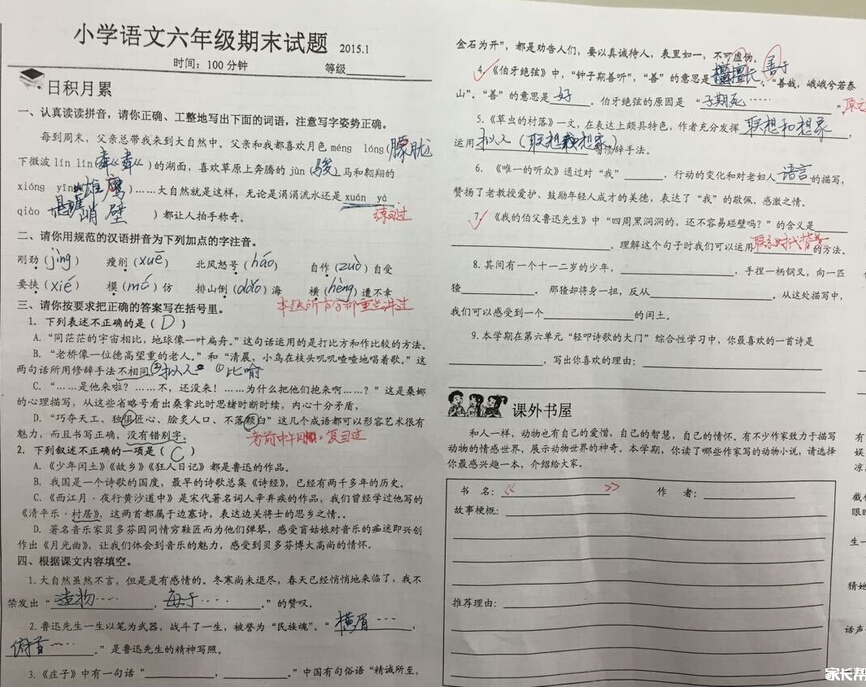 小学语文六年级期末试题 2015.1
时间：100分钟 等级
日积月累
一、认真读读拼音，请你正确、工整地写出下面的词语，注意写字姿势正确。
每到周末，父亲总带我来到大自然中。父亲和我都喜欢月色 méng lóng（朦胧
下微波 lín lín（粼粼）的湖面，喜欢草原上奔腾的 jùn（骏）马和翱翔的
xióng yīng（雄鹰）……大自然就是这样，无论是涓涓流水还是 xuán yá
qiào （悬崖峭壁）都让人拍手称奇。 练习过
二、请你用规范的汉语拼音为下列加点的字注音。
刚劲（jìng） 瘦削（xuē） 北风怒号（háo） 自作（zuò）自受
要挟（xié） 模（mó）仿 排山倒（dǎo）海 横（hèng）遭不幸
三、请你按要求把正确的答案写在括号里。 本题所有内容都重点讲过
1. 下列表述不正确的是（D）
A. “同茫茫的宇宙相比，地球像一叶扁舟。”这句话运用的是打比方和作比较的方法。
B. “老桥像一位德高望重的老人。”和“清晨，小鸟在枝头叽叽喳喳地唱着歌。”这
两句话所用修辞手法不相同。②拟人 ①比喻
C. “……是他来啦？……不，还没来！……为什么把他们抱来啊……？”这是桑娜
的心理描写，从这些省略号看出桑拿此时思绪时断时续，内心十分矛盾，
D. “巧夺天工、独俱匠心、脍炙人口、不落颓臼”这几个成语都可以形容艺术很有
魅力，而且书写正确，没有错别字。 考前中午 复习过
2. 下列叙述不正确的一项是（C）
A. 《少年闰土》《故乡》《狂人日记》都是鲁迅的作品。
B. 我国是一个诗歌的国度，最早的诗歌总集《诗经》，已经有两千多年的历史。
C. 《西江月·夜行黄沙道中》是宋代著名词人辛弃疾的作品，我们曾经学过他写的
《清平乐·村居》，这两首都属于边塞诗，表达边关将士的思乡之情。。
D. 著名音乐家贝多芬因同情穷鞋匠而为他们弹琴，感受盲姑娘对音乐的痴迷即兴创
作出《月光曲》，让我们体会到音乐的魅力，感受到贝多芬博大高尚的情怀。
四、根据课文内容填空。
1. 大自然虽然不言，但是是有感情的。冬寒尚未退尽，春天已经悄悄地来临了，我不
禁发出“造物……，每于……。”的赞叹。
2. 鲁迅先生一生以笔为武器，战斗了一生，被誉为“民族魂”。“横眉……，
俯首……。”是鲁迅先生的精神写照。
3. 《庄子》中有一句话“，。”中国有句俗语“精诚所至，
金石为开”，都是劝告人们，要以真诚待人，表里如一，不可虚伪。
4. 《伯牙绝弦》中，“钟子期善听”，“善”的意思是擅长 善于，“善哉，峨峨兮若泰
山”。“善”的意思是好。伯牙绝弦的原因是“子期死……” 原文
5. 《草虫的村落》一文，在表达上颇具特色，作者充分发挥联想和想象，
运用拟人（联想和想象）修辞手法。
6. 《唯一的听众》通过对“我”、行动的变化和对老妇人语言的描写，
赞扬了老教授爱护、鼓励年轻人成才的美德，表达了“我”的敬佩、感激之情。
7. 《我的伯父鲁迅先生》中“四周黑洞洞的，还不容易碰壁吗？”的含义是
，理解这个句子时我们可以运用联系时代背景的方法。
8. 其间有一个十一二岁的少年，，手捏一柄钢叉，向一匹
猹，那猹却将身一扭，反从。从这处描写中，
我们可以感受到一个的闰土。
9. 本学期在第六单元“轻叩诗歌的大门”综合性学习中，你最喜欢的一首诗是
，写出你喜欢的理由：
课外书屋
和人一样，动物也有自己的爱憎，自己的智慧，自己的情怀。有不少作家致力于描写
动物的情感世界，展示动物世界的神奇。本学期，你读了哪些作家写的动物小说，请选择
你最感兴趣一本，介绍给大家。
书 名：《 》 作 者：
故事梗概：
推荐理由：
有
娱
凉
截
眼时
生一
猜她
话声
家长帮